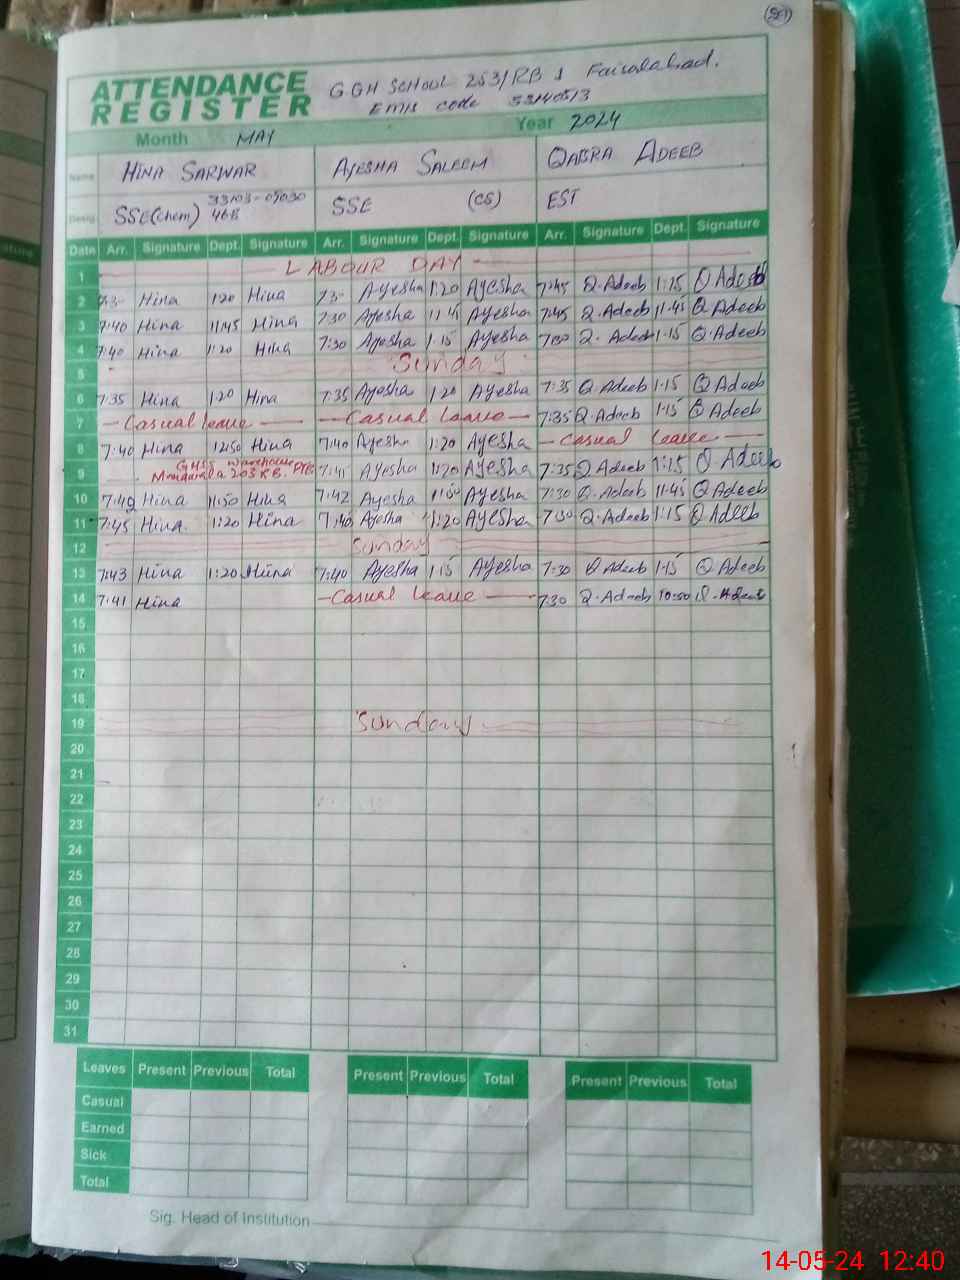 50
ATTENDANCE REGISTER
G.GH SCHOOL 253/RB 1 Faisalabad.
EMIS code
Month MAY Year 2024
Name HINA SARWAR AYESHA SALEEM QABRA ADEEB
Desig. SSE(Chem) SSE (CS) EST
Date Arr. Signature Dept. Signature Arr. Signature Dept. Signature Arr. Signature Dept. Signature
1 LABOUR DAY
2 Hina 1:20 Hina Ayesha 1:20 Ayesha 7:45 Q.Adeeb 1:15 Q Adeeb
3 7:40 Hina 11:45 Hina 7:30 Ayesha 11:45 Ayesha 7:45 Q.Adeeb 11:45 Q Adeeb
4 7:40 Hina 1:20 Hina 7:30 Ayesha 1:15 Ayesha Q.Adeeb 1:15 Q.Adeeb
5 Sunday
6 7:35 Hina 1:20 Hina 7:35 Ayesha 1:20 Ayesha 7:35 Q Adeeb 1:15 Q Adeeb
7 Casual leave Casual leave 7:35 Q Adeeb 1:15 Q Adeeb
8 7:40 Hina 12:50 Hina 7:40 Ayesha 1:20 Ayesha Casual leave
9 Ayesha 1:20 Ayesha 7:35 Q Adeeb 1:15 Q Adeeb
10 7:42 Hina 11:50 Hina 7:42 Ayesha 11:50 Ayesha 7:30 Q.Adeeb 11:45 Q Adeeb
11 7:45 Hina 1:20 Hina 7:40 Ayesha 1:20 Ayesha 7:30 Q.Adeeb 1:15 Q Adeeb
12 Sunday
13 7:43 Hina 1:20 Hina 7:40 Ayesha 1:15 Ayesha 7:30 Q Adeeb 1:15 Q Adeeb
14 7:41 Hina Casual leave 7:30 Q.Adeeb 10:50 Q.Adeeb
15
16
17
18
19 Sunday
20
21
22
23
24
25
26
27
28
29
30
31
Leaves Present Previous Total Present Previous Total Present Previous Total
Casual
Earned
Sick
Total
Sig. Head of Institution
14-05-24 12:40